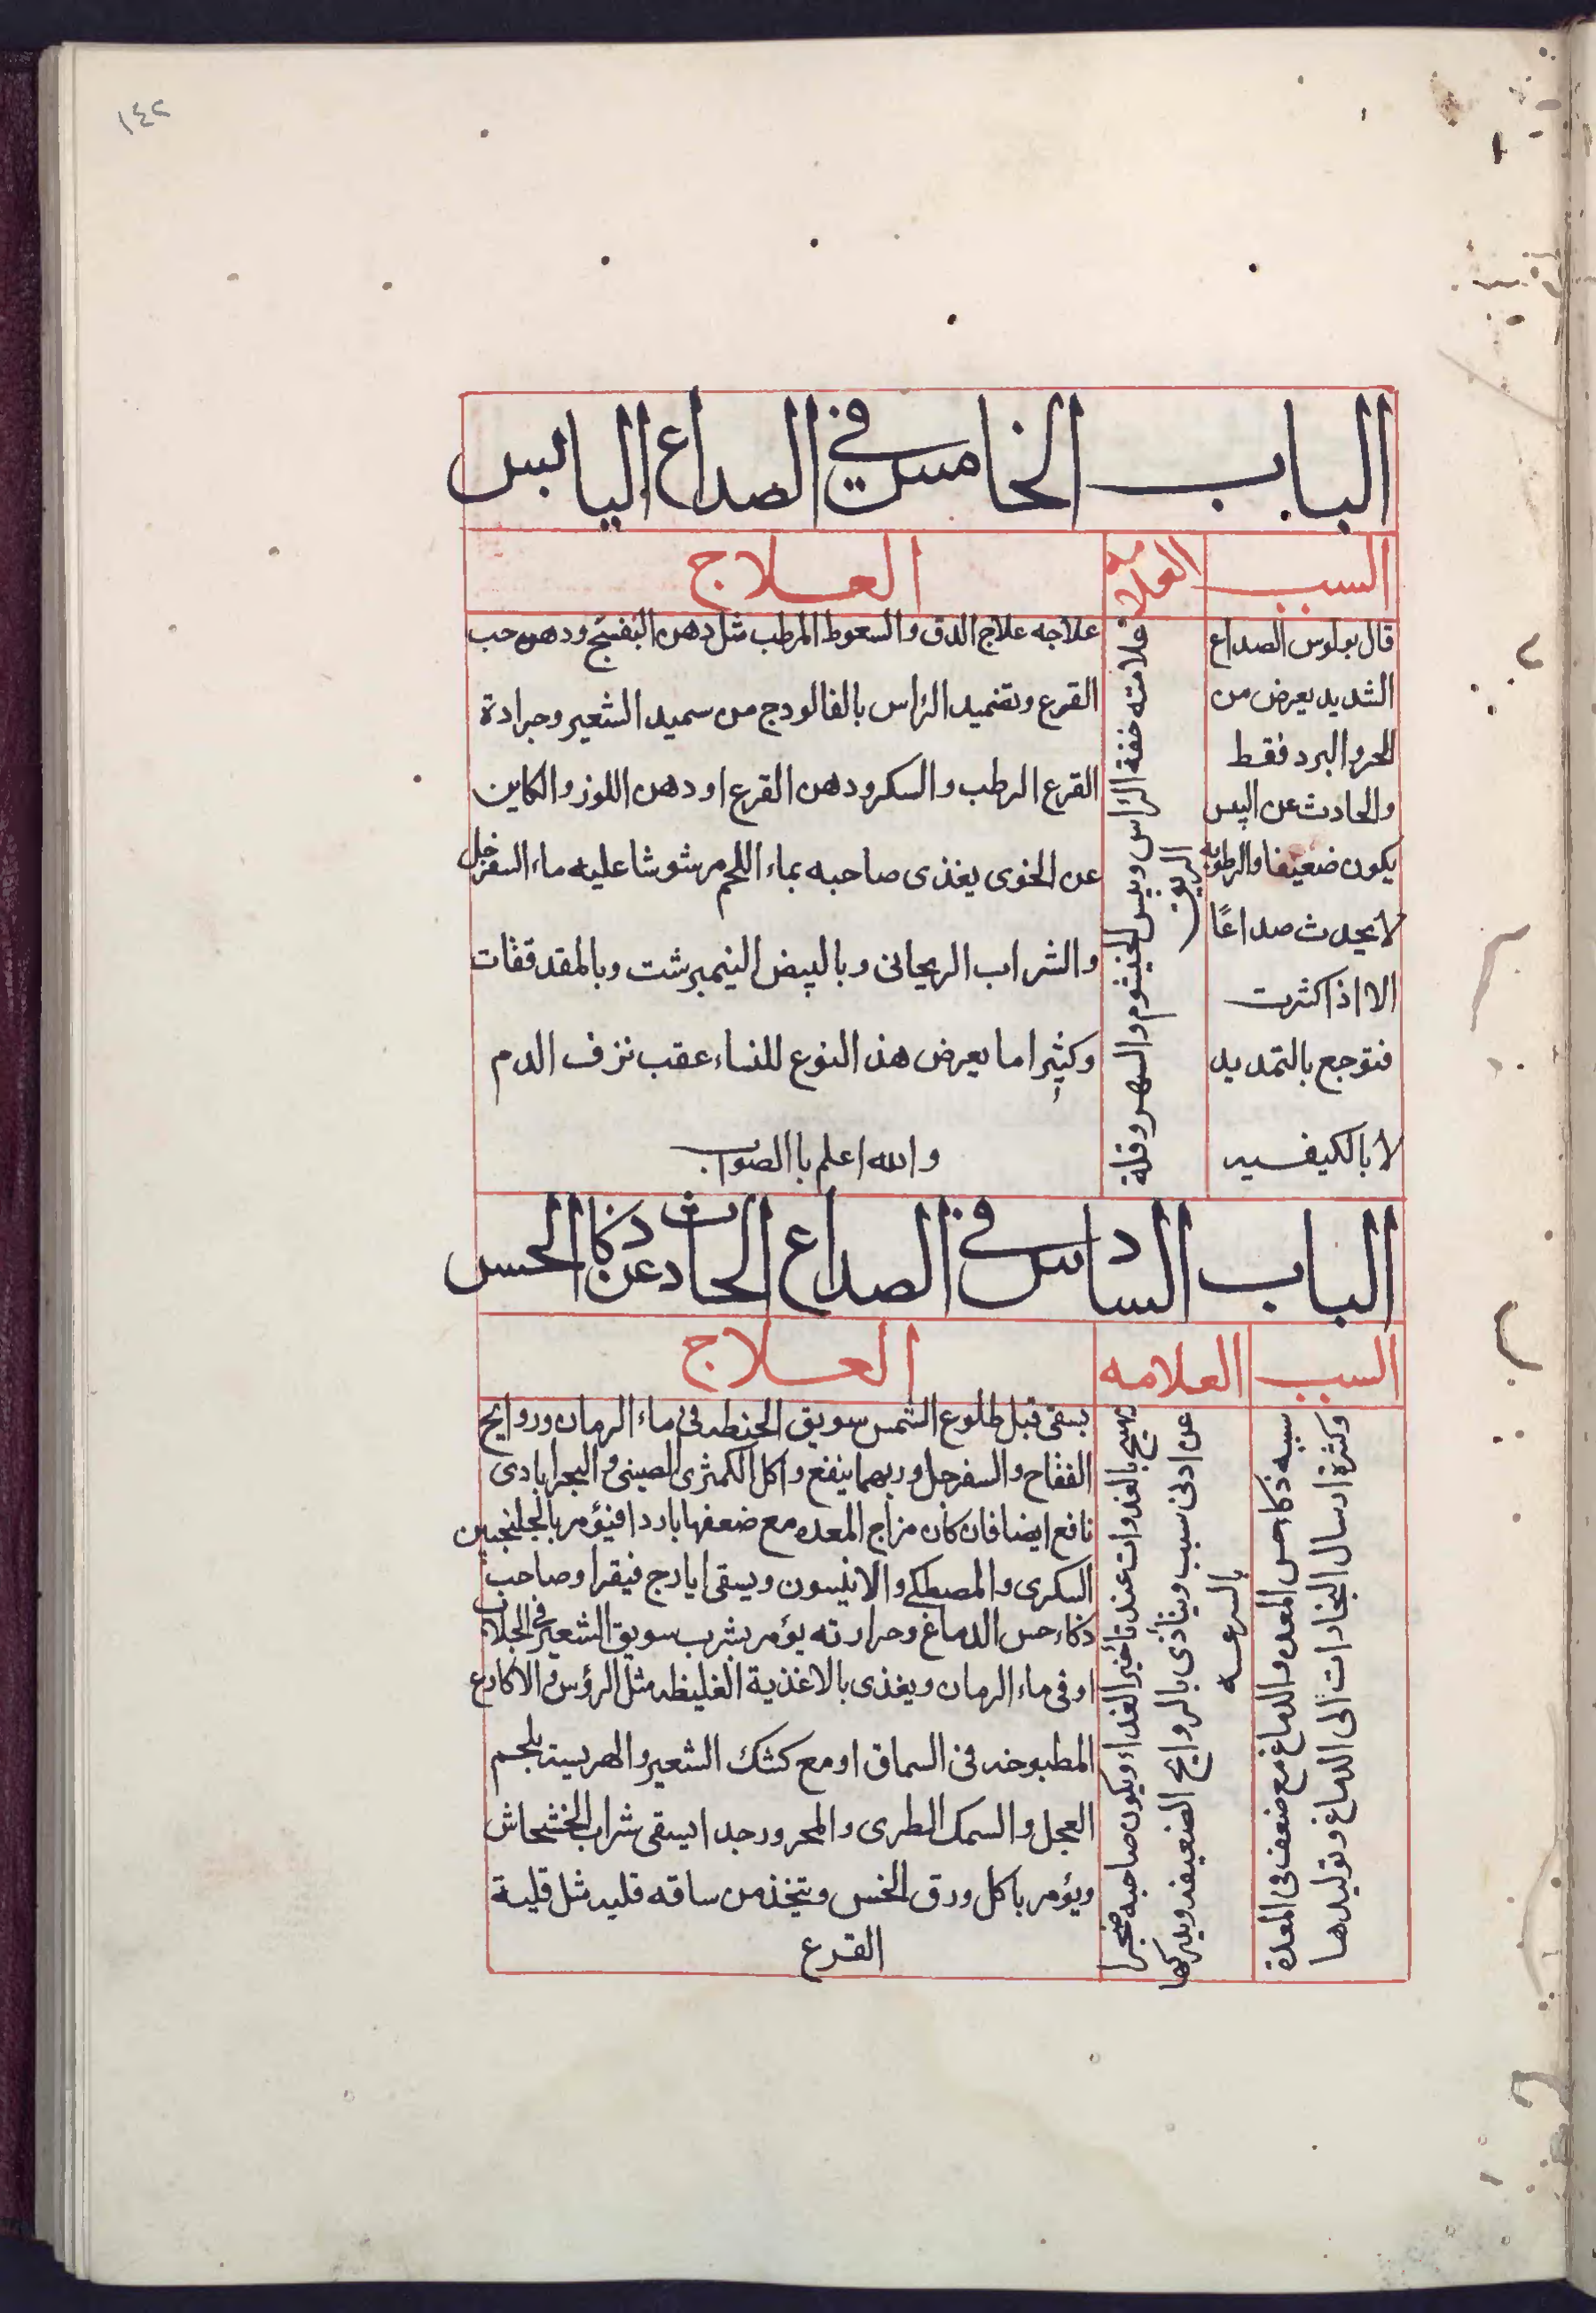 ١٤٢
الباب الخامس في الصداع اليابس
السبب
العلامه
العلاج
قال بولوس الصداع
الشديد يعرض من
الحر والبرد فقط
والحادث عن اليبس
يكون ضعيفا والرطوبه
لا يحدث صداعًا
الا اذا كثرت
فتوجع بالتمديد
لا بالكيفسيه
فلامته خفة الراس ويبس الخيشوم والسهر وقلة
الريق
علاجه علاج الدق والسعوط المرطب مثل دهن البنفسج ودهن حب
القرع وتضميد الراس بالفالودج من سميد الشعير وجرادة
القرع الرطب والسكر ودهن القرع او دهن اللوز والكاين
عن الخوى يغذى صاحبه بماء اللحم مرشوشا عليه ماء السفرجل
والشراب الريحانى وبالبيض النيمبرشت وبالمقدققات
وكثيرا ما يعرض هذ النوع للنساء عقب نزف الدم
والله اعلم باالصواب
الباب السادس في الصداع الحادث عن ذكا الحس
السبب
العلامه
العلاج
سببه ذكاء حس المعده والدماغ مع ضعف فى المعدة
وكثرة ارسال البخارات الى الدماغ وتوليدها
يهيج بالغدوات عند تأخير الغداء ويكون صاحبه ضجرا
عن ادنى سبب ويتأذى بالروايح الضعيفه ويدركها
بالسرعه
يسقى قبل طلوع الشمس سويق الحنطه فى ماء الرمان وروايح
التفاح والسفرجل وربهما ينفع واكل الكمثرى الصينى والبحرابادى
نافع ايضا فان كان مزاج المعده مع ضعفها باردا فيؤمر بالجلنجبين
السكرى والمصطكى والانيسون ويسقى ايارج فيقرا وصاحب
ذكاء حس الدماغ وحرارته يؤمر بشرب سويق الشعير فى الجلاب
او فى ماء الرمان ويغذى بالاغذية الغليظه مثل الرؤس والاكارع
المطبوخه فى السماق او مع كشك الشعير والهريسة بلحم
العجل والسمك الطرى والمحرور جدا يسقى شراب الخشخاش
ويؤمر باكل ورق الخس ويتخذ من ساقه قليه مثل قلية
القرع